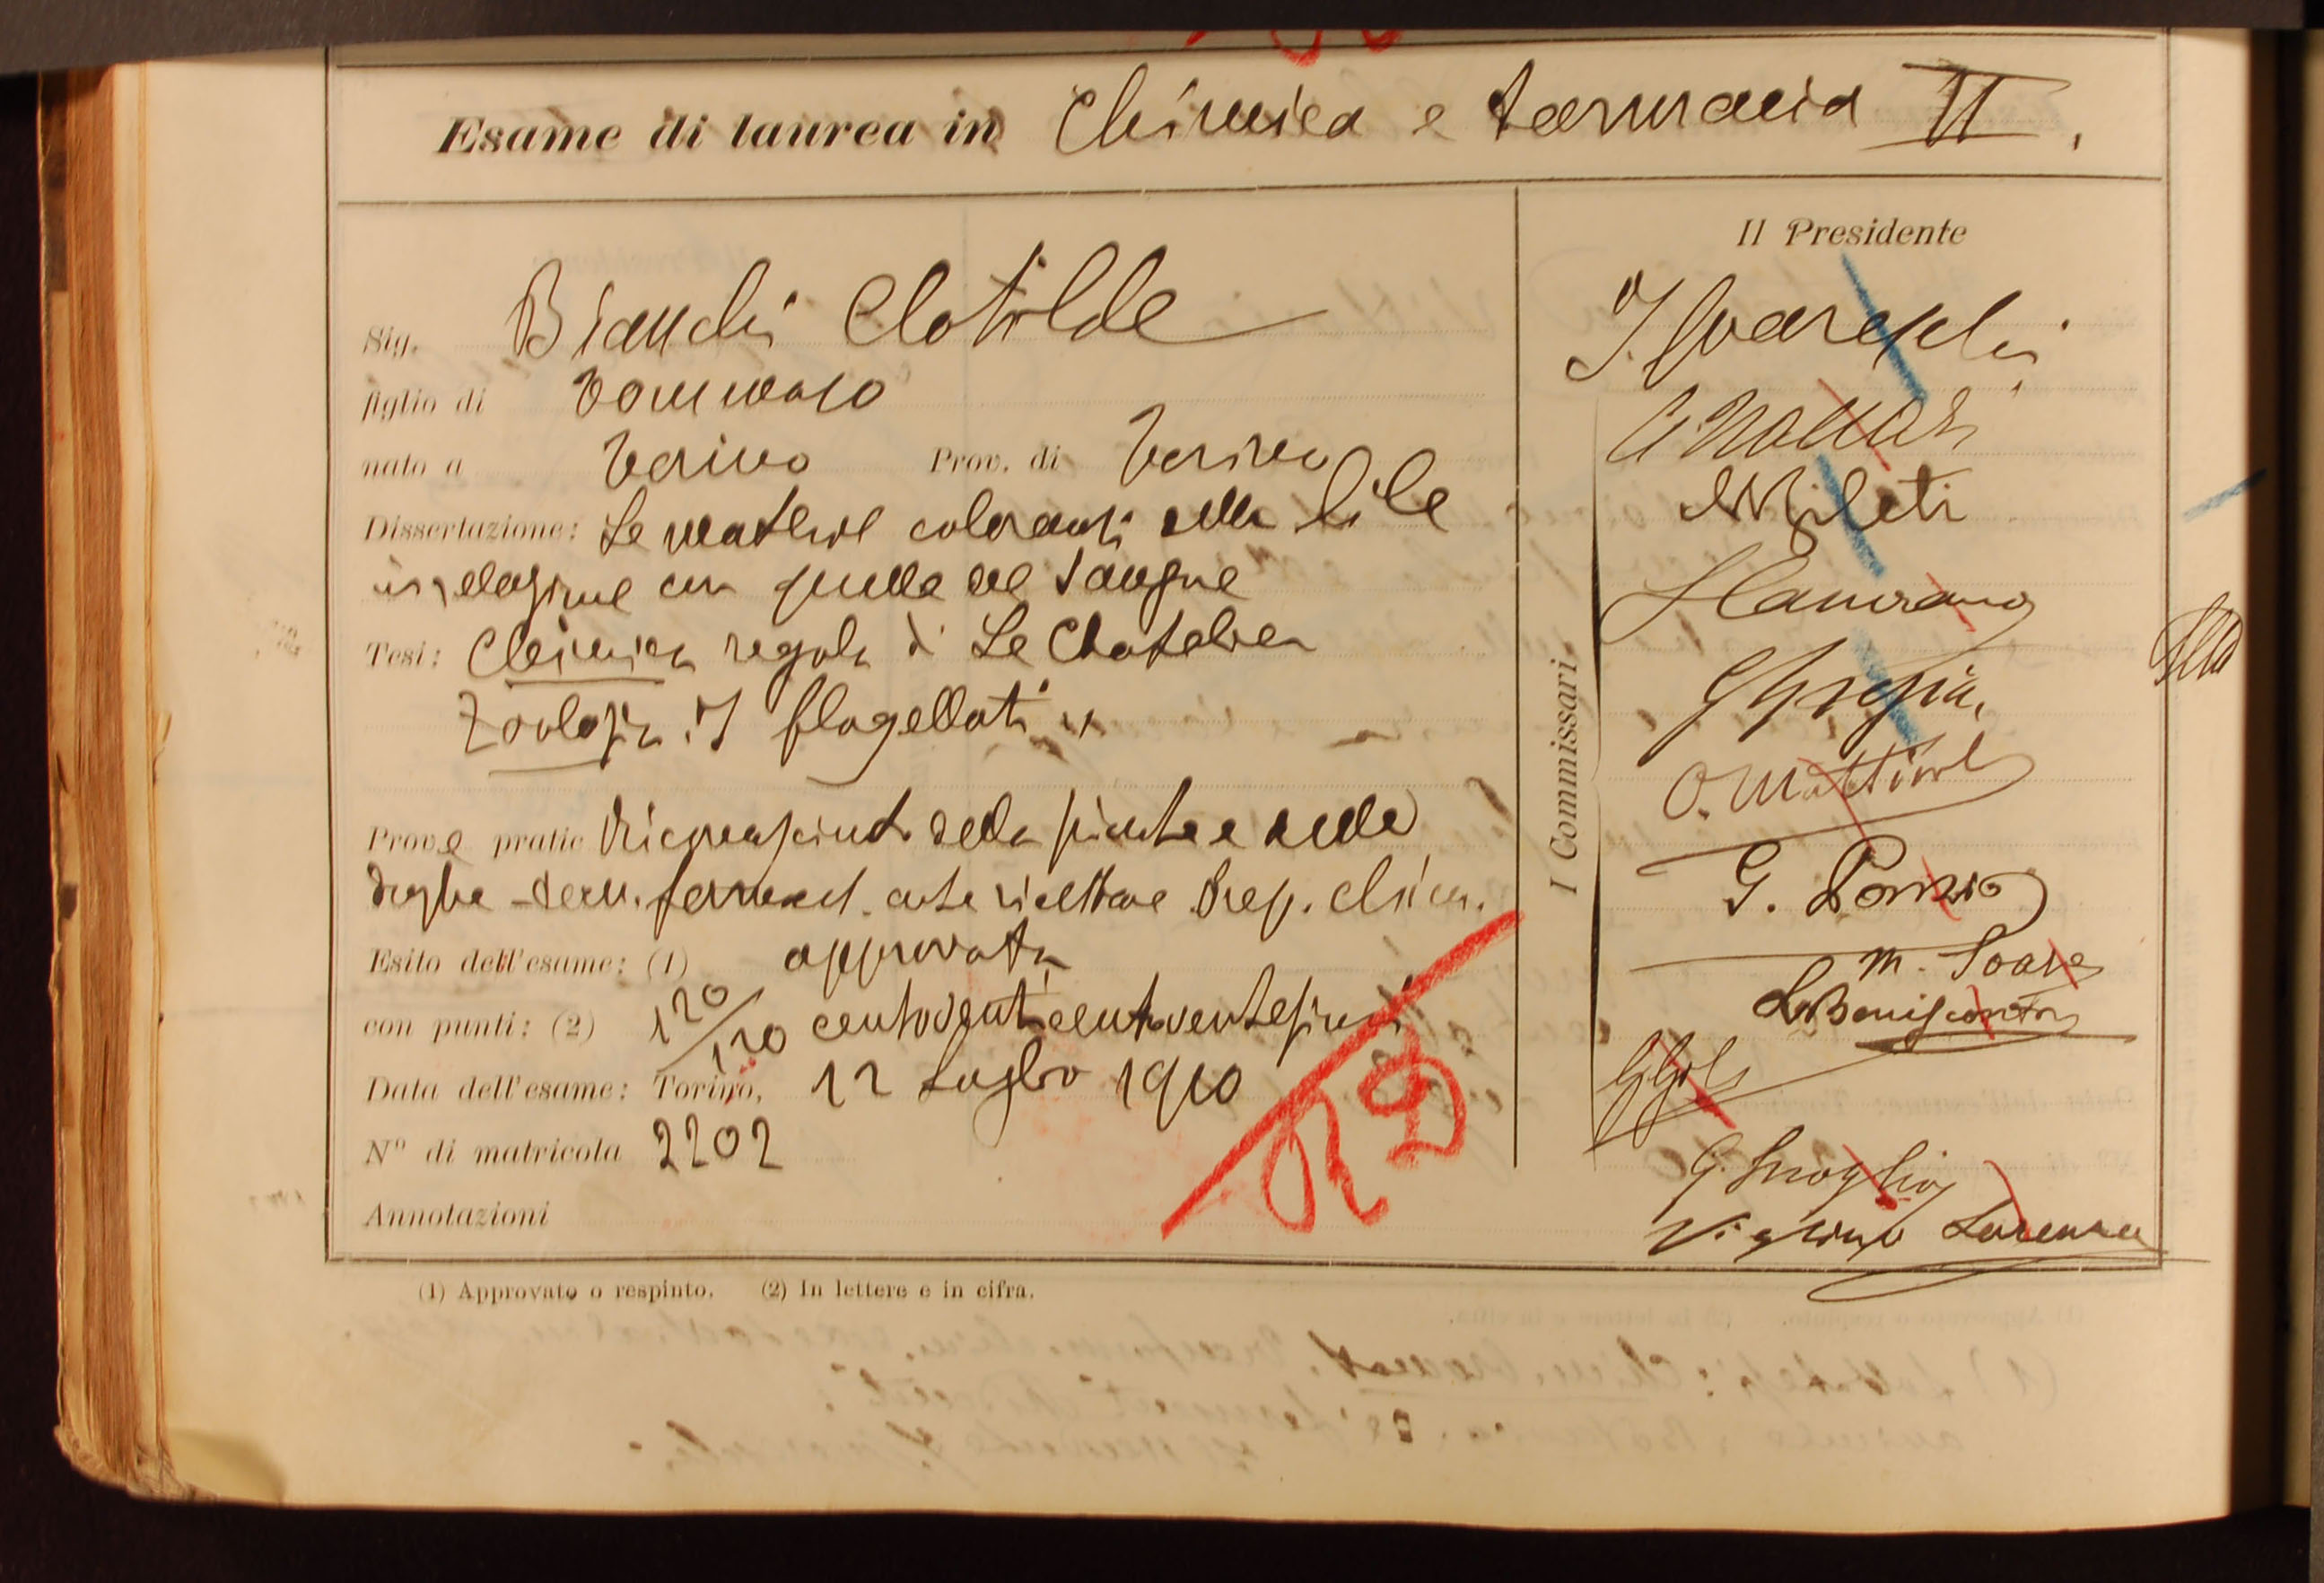 Esame di laurea in Chimica e farmacia II.
Sig. Bianchi Clotilde
figlio di Tommaso
nato a Torino Prov. di Torino
Dissertazione: Le materie coloranti della bile
in relazione con quelle del sangue
Tesi: Chimica regola di Le Chatelier
Zoologia. I flagellati
Prove pratic Riconoscimento della piante e delle
droghe - chim. farmaceut. arte ricettare prep. chim.
Esito dell'esame: (1) approvata
con punti: (2) 120/120 centoventi centoventesimi
Data dell'esame: Torino, 12 Luglio 1910
N° di matricola 2202
Annotazioni
Il Presidente
I. Guareschi
I Commissari
Mileti
L. Camerano
O. Mattirolo
G. Ponzio
M. Soave
G. Issoglio
Vignino Lorenzo
(1) Approvato o respinto. (2) In lettere e in cifra.